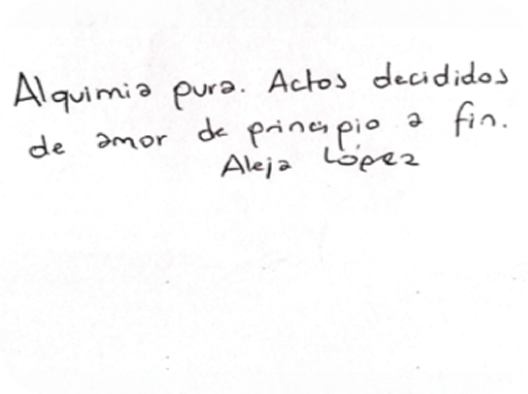 Alquimia pura. Actos decididos
de amor de principio a fin.
Aleja López